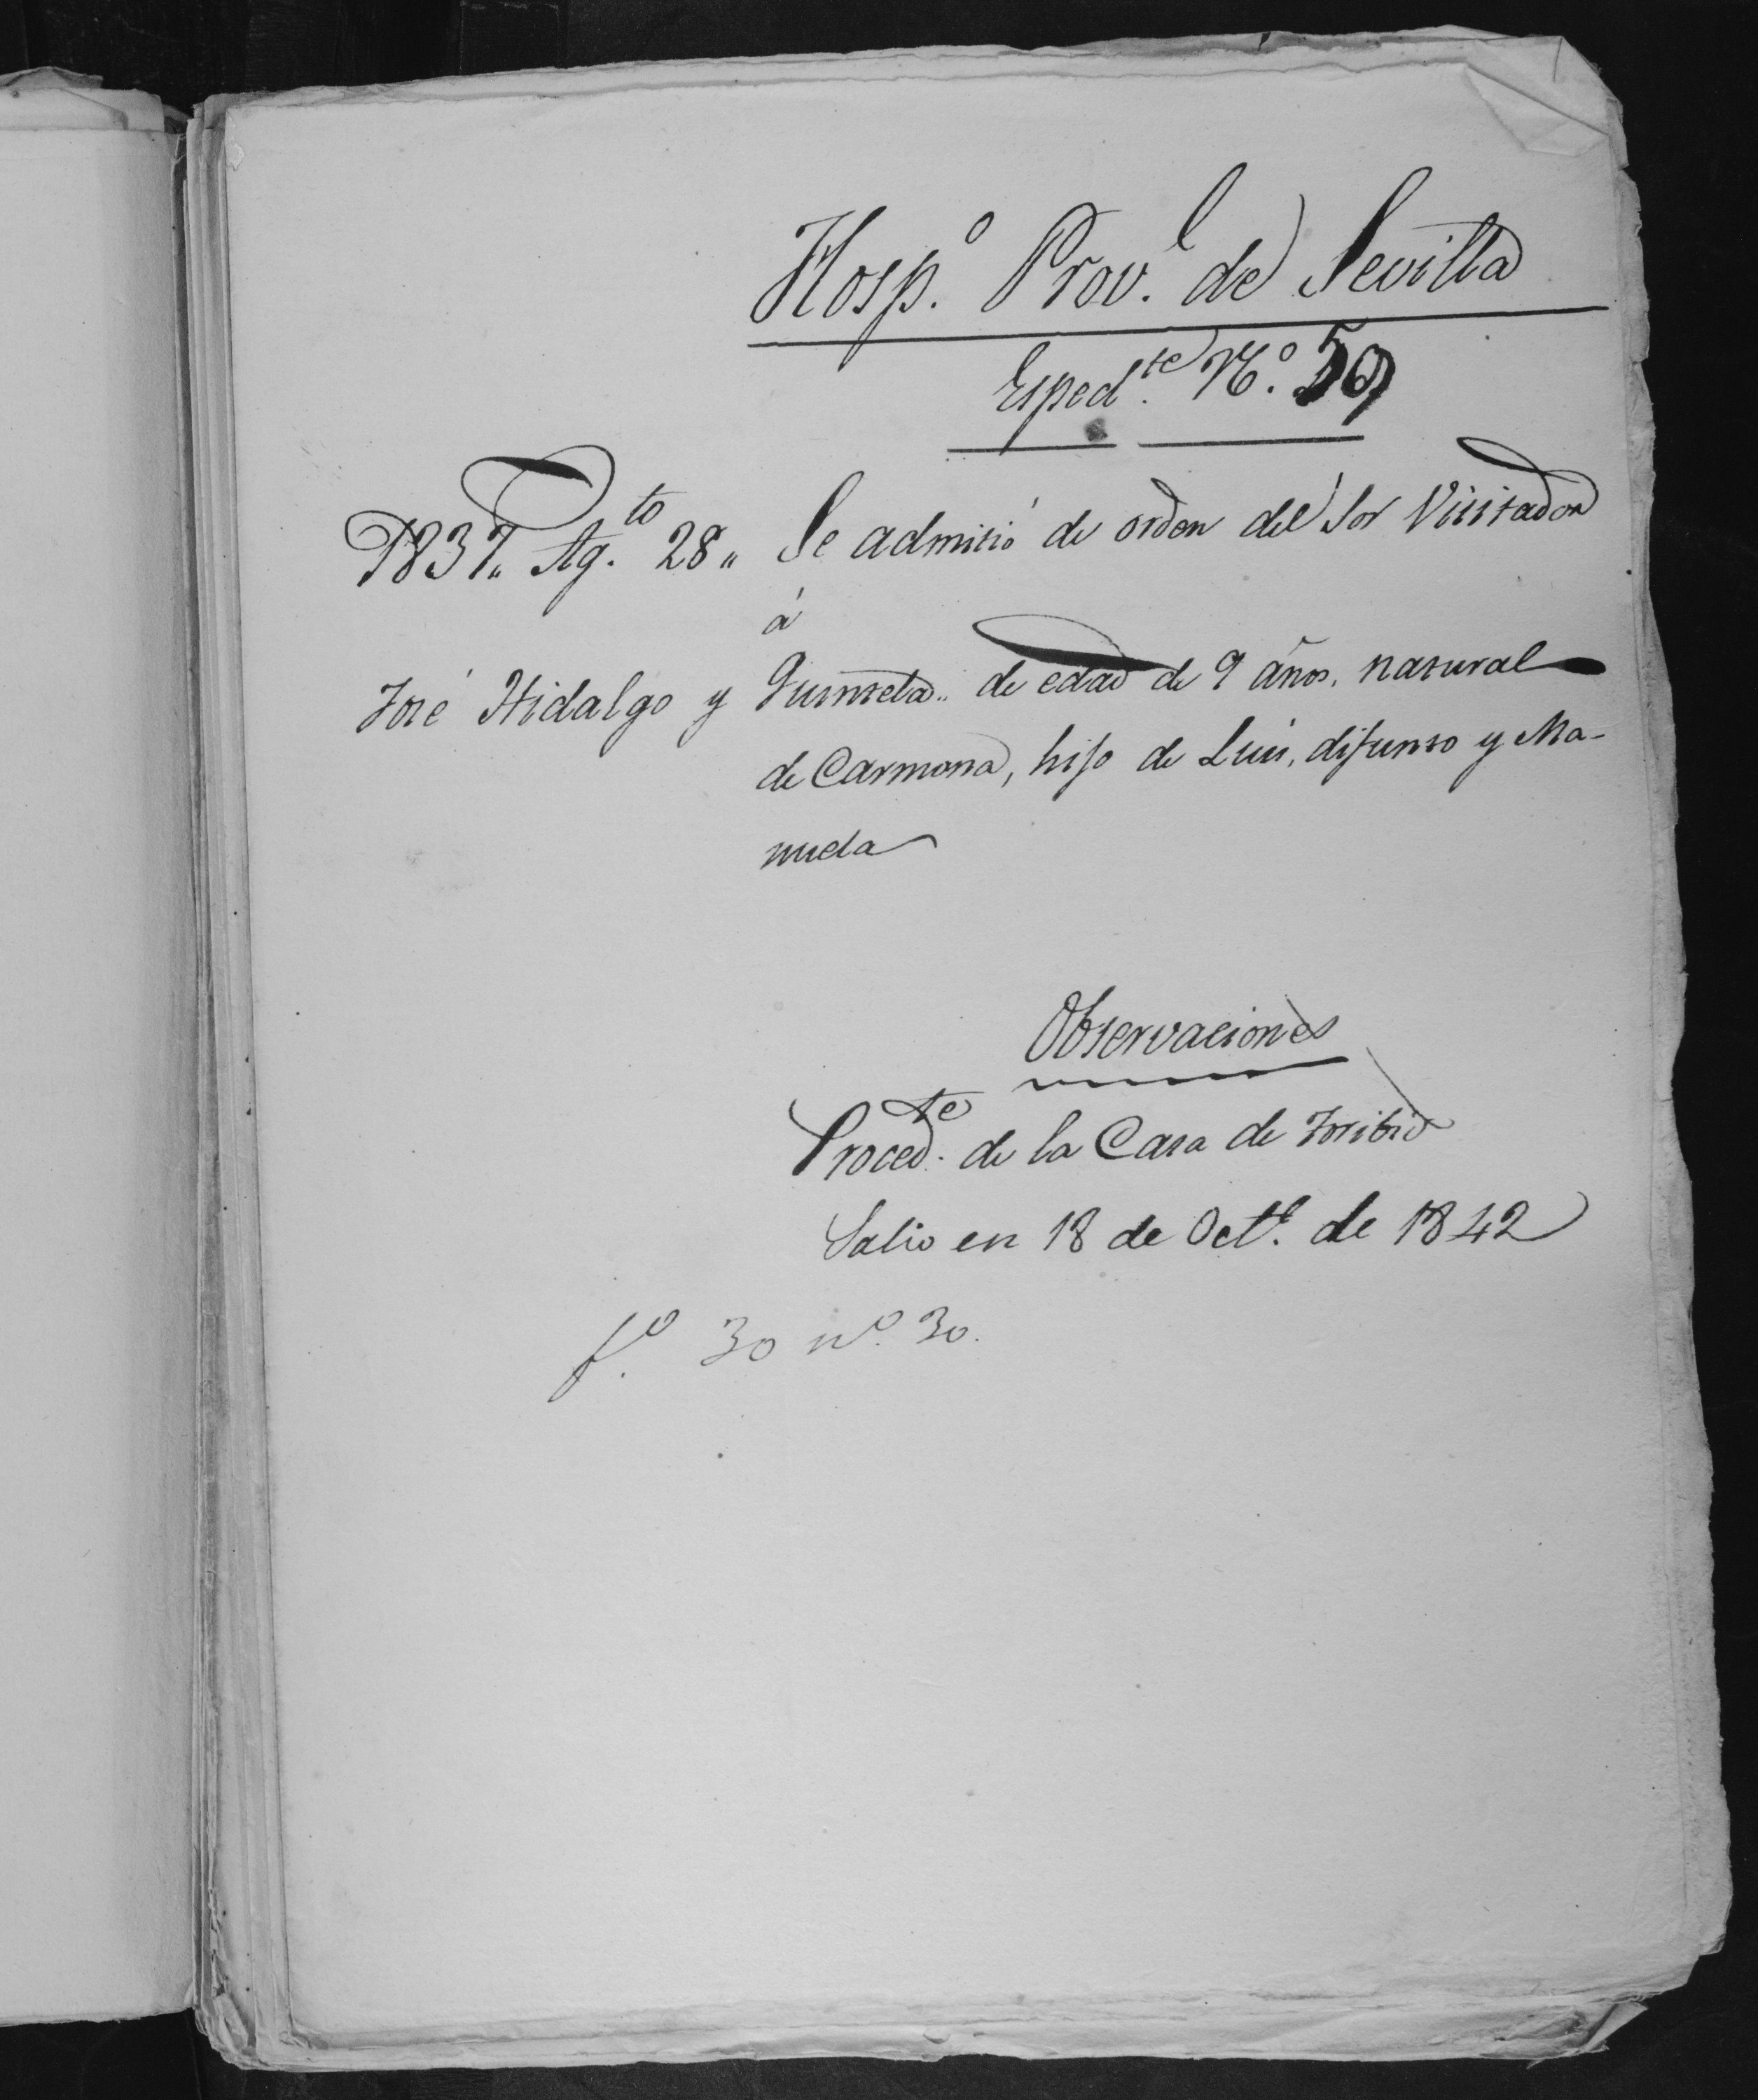 Hosp.º Prov.l de Sevilla
Esped.te N.º 59
1837,, Ag.to 28,, Se admitió de orden del Sor Visitador
á
José Hidalgo y Quintela.. de edad de 9 años, natural
de Carmona, hijo de Luis, difunto y Ma-
nuela
Observaciones
Proced.te de la Casa de Toribio
Salio en 18 de Oct.e de 1842
f.º 30 nº. 30.